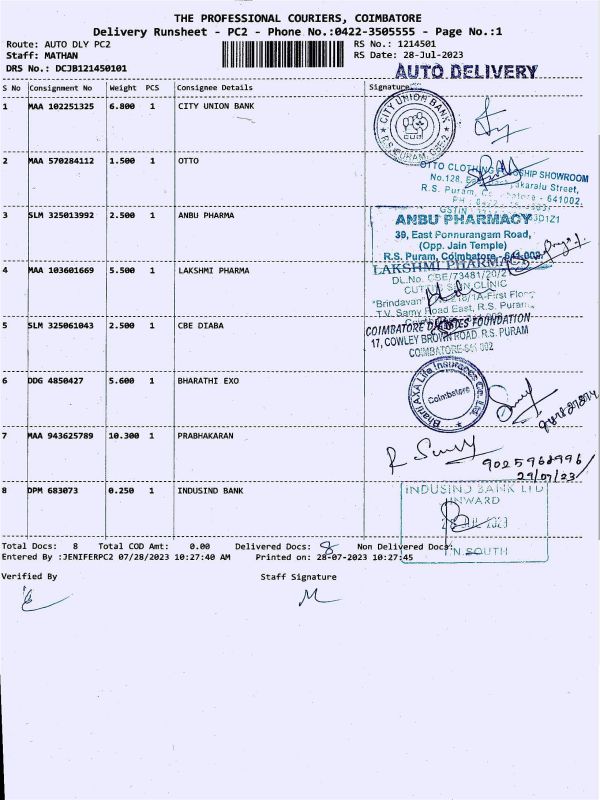 THE PROFESSIONAL COURIERS, COIMBATORE
Delivery Runsheet - PC2 - Phone No.:0422-3505555 - Page No.:1
Route: AUTO DLY PC2 RS No.: 1214501
Staff: MATHAN RS Date: 28-Jul-2023
DRS No.: DCJB121450101
AUTO DELIVERY
S No Consignment No Weight PCS Consignee Details Signature
1 MAA 102251325 6.800 1 CITY UNION BANK
CITY UNION BANK
R.S. PURAM, CBE-2
2 MAA 570284112 1.500 1 OTTO
OTTO CLOTHING SHOWROOM
No.128,
R.S. Puram, 641002.
3 SLM 325013992 2.500 1 ANBU PHARMA
ANBU PHARMACY
39, East Ponnurangam Road,
(Opp. Jain Temple)
R.S. Puram, Coimbatore - 641 002
4 MAA 103601669 5.500 1 LAKSHMI PHARMA
LAKSHMI PHARMACY
DL.No. CBE/73481/20/21
SKIN CLINIC
"Brindavan" First Floor
T.V. Samy Road East, R.S. Puram
5 SLM 325061043 2.500 1 CBE DIABA
COIMBATORE DIABETES FOUNDATION
17, COWLEY BROWN ROAD, R.S. PURAM
COIMBATORE-641 002
6 DDG 4850427 5.600 1 BHARATHI EXO
Bharti AXA Life Insurance Co. Ltd.
Coimbatore
7 MAA 943625789 10.300 1 PRABHAKARAN
9025968996
29/07/23
8 DPM 683073 0.250 1 INDUSIND BANK
INDUSIND BANK LTD
INWARD
JUL 2023
N.SOUTH
Total Docs: 8 Total COD Amt: 0.00 Delivered Docs: 8 Non Delivered Docs:
Entered By :JENIFERPC2 07/28/2023 10:27:40 AM Printed on: 28-07-2023 10:27:45
Verified By Staff Signature